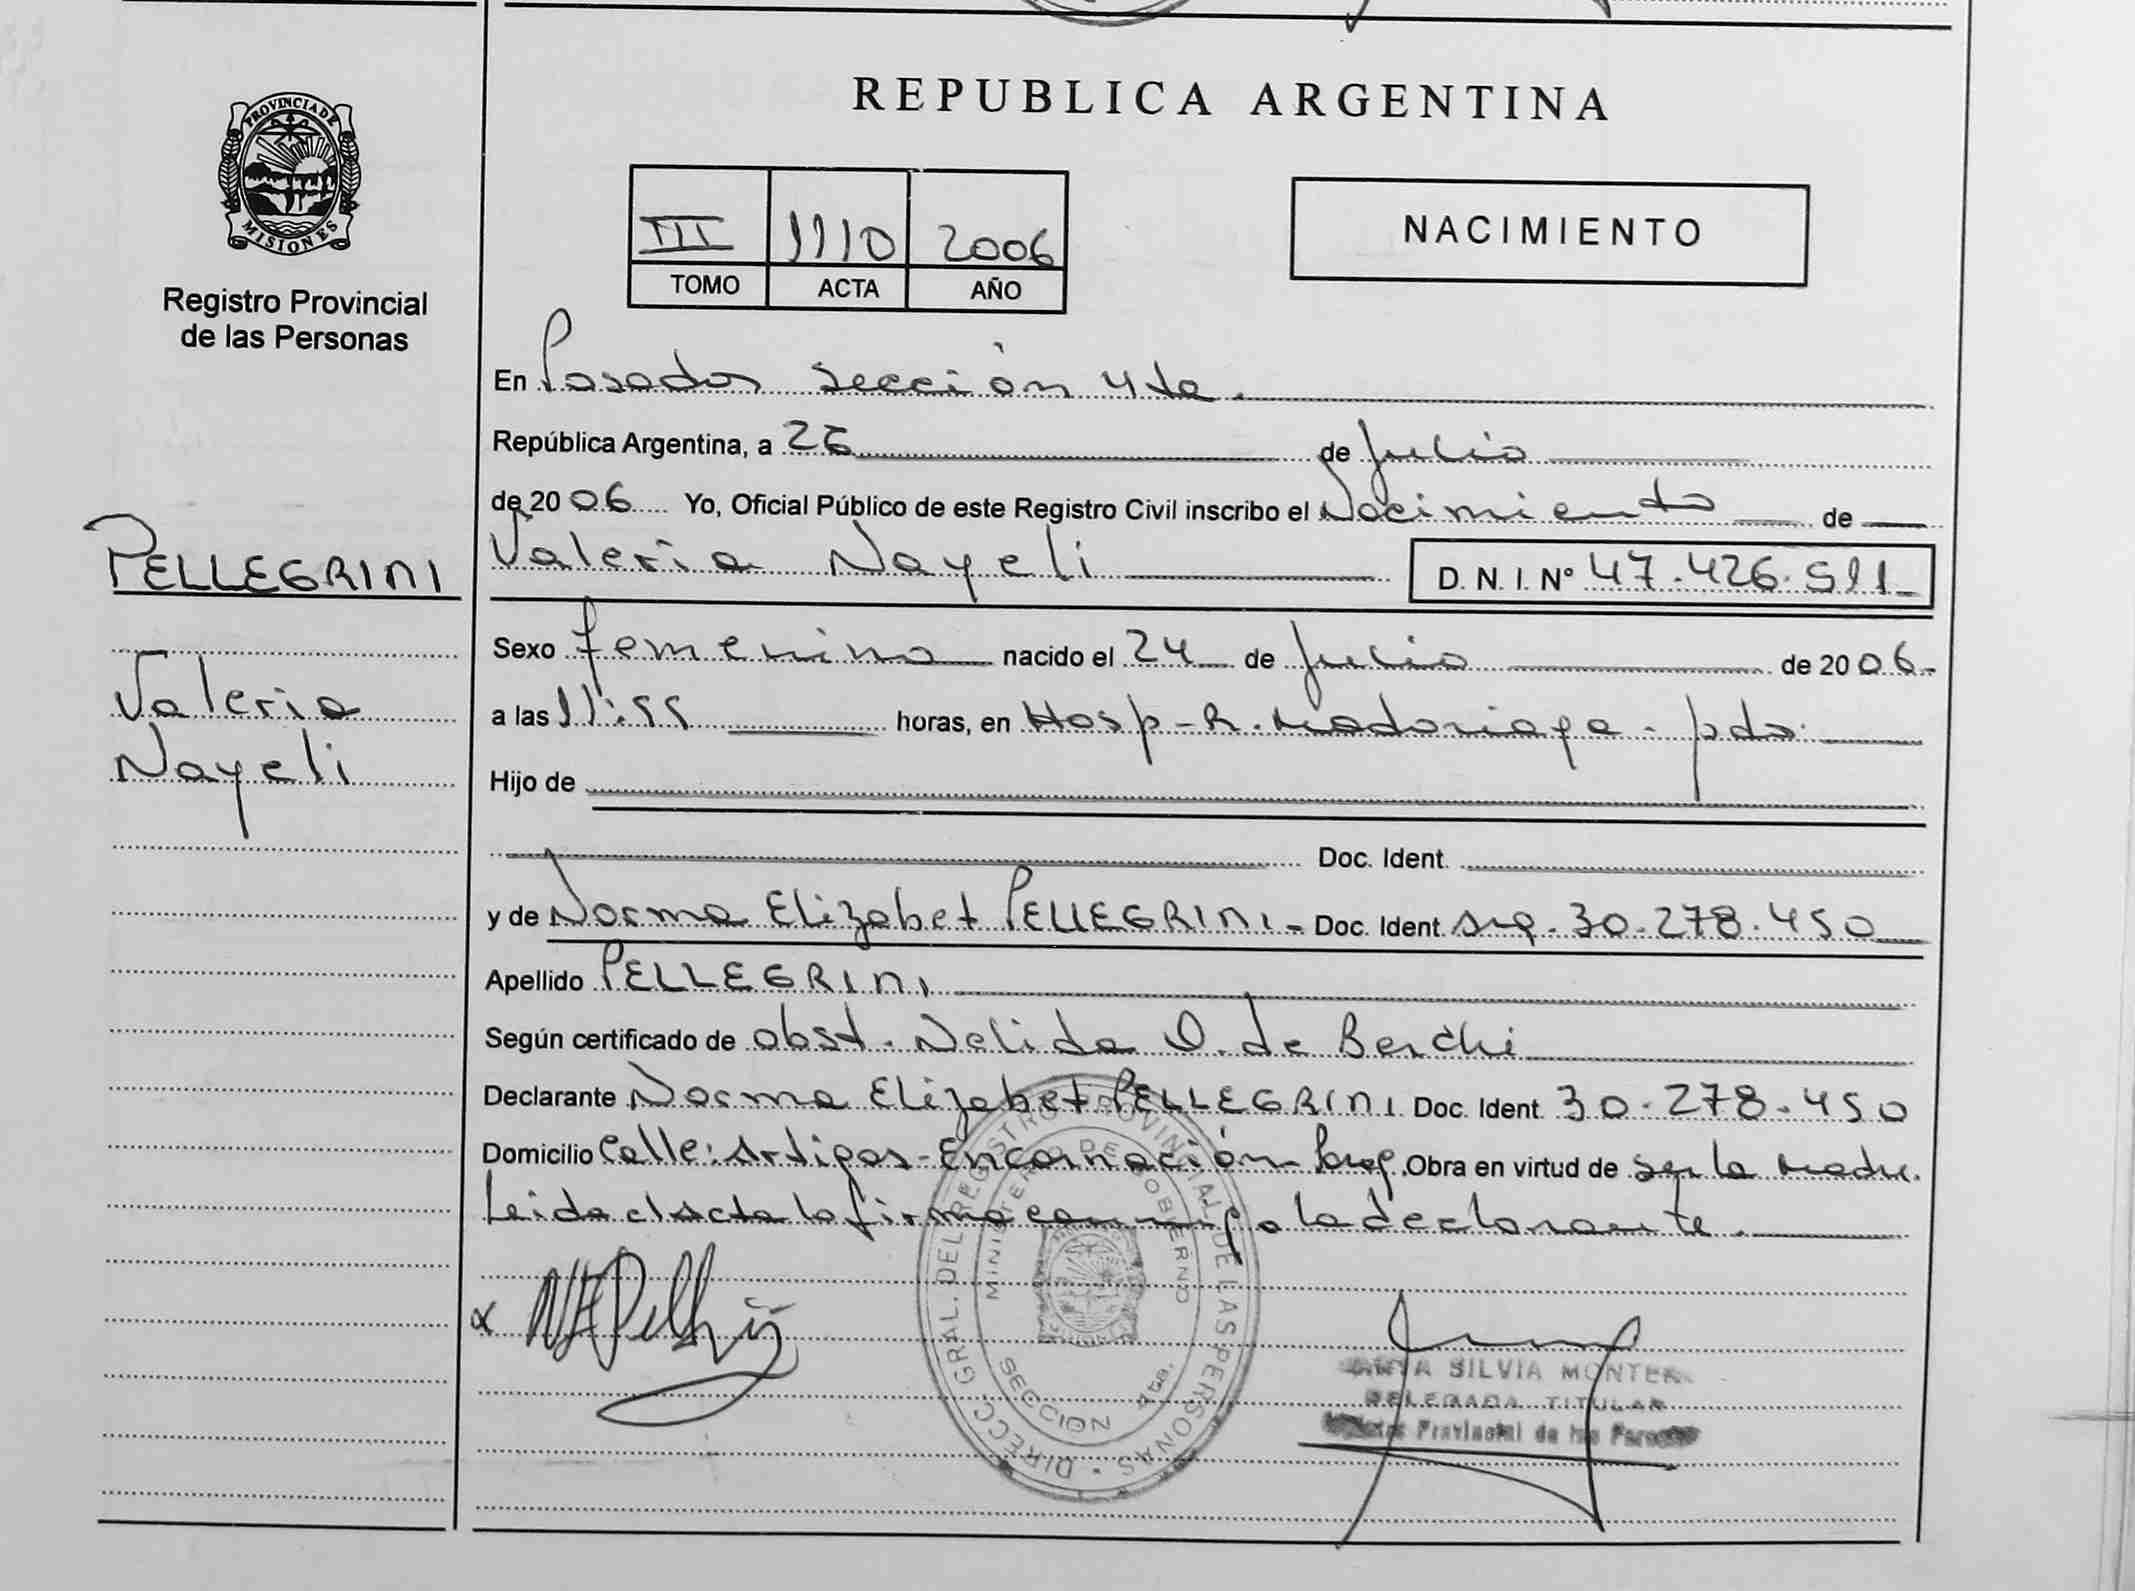 PROVINCIA DE
MISIONES
Registro Provincial
de las Personas
REPUBLICA ARGENTINA
III 1110 2006
TOMO ACTA AÑO
NACIMIENTO
En Posadas sección 4ta.
República Argentina, a 26 de Julio
de 2006 Yo, Oficial Público de este Registro Civil inscribo el Nacimiento de
PELLEGRINI
Valeria Nayeli D. N. I. Nº 47.426.511
Sexo femenino nacido el 24 de Julio de 2006-
Valeria
a las 11:55 horas, en Hosp-R. Madariaga - pdas.
Nayeli
Hijo de
Doc. Ident.
y de Norma Elizabet PELLEGRINI - Doc. Ident. arg. 30.278.450
Apellido PELLEGRINI
Según certificado de obst. Nelida O. de Berchi
Declarante Norma Elizabet PELLEGRINI Doc. Ident. 30.278.450
Domicilio Calle: Artigas - Encarnación - Parag. Obra en virtud de ser la madre.
Leida el acta la firma conmigo la declarante.
DIRECC. GRAL. DEL REGISTRO PROVINCIAL DE LAS PERSONAS
MINISTERIO DE GOBIERNO
SECCION 4ta.
SILVIA MONTER
DELEGADA TITULAR
Provincial de las Personas